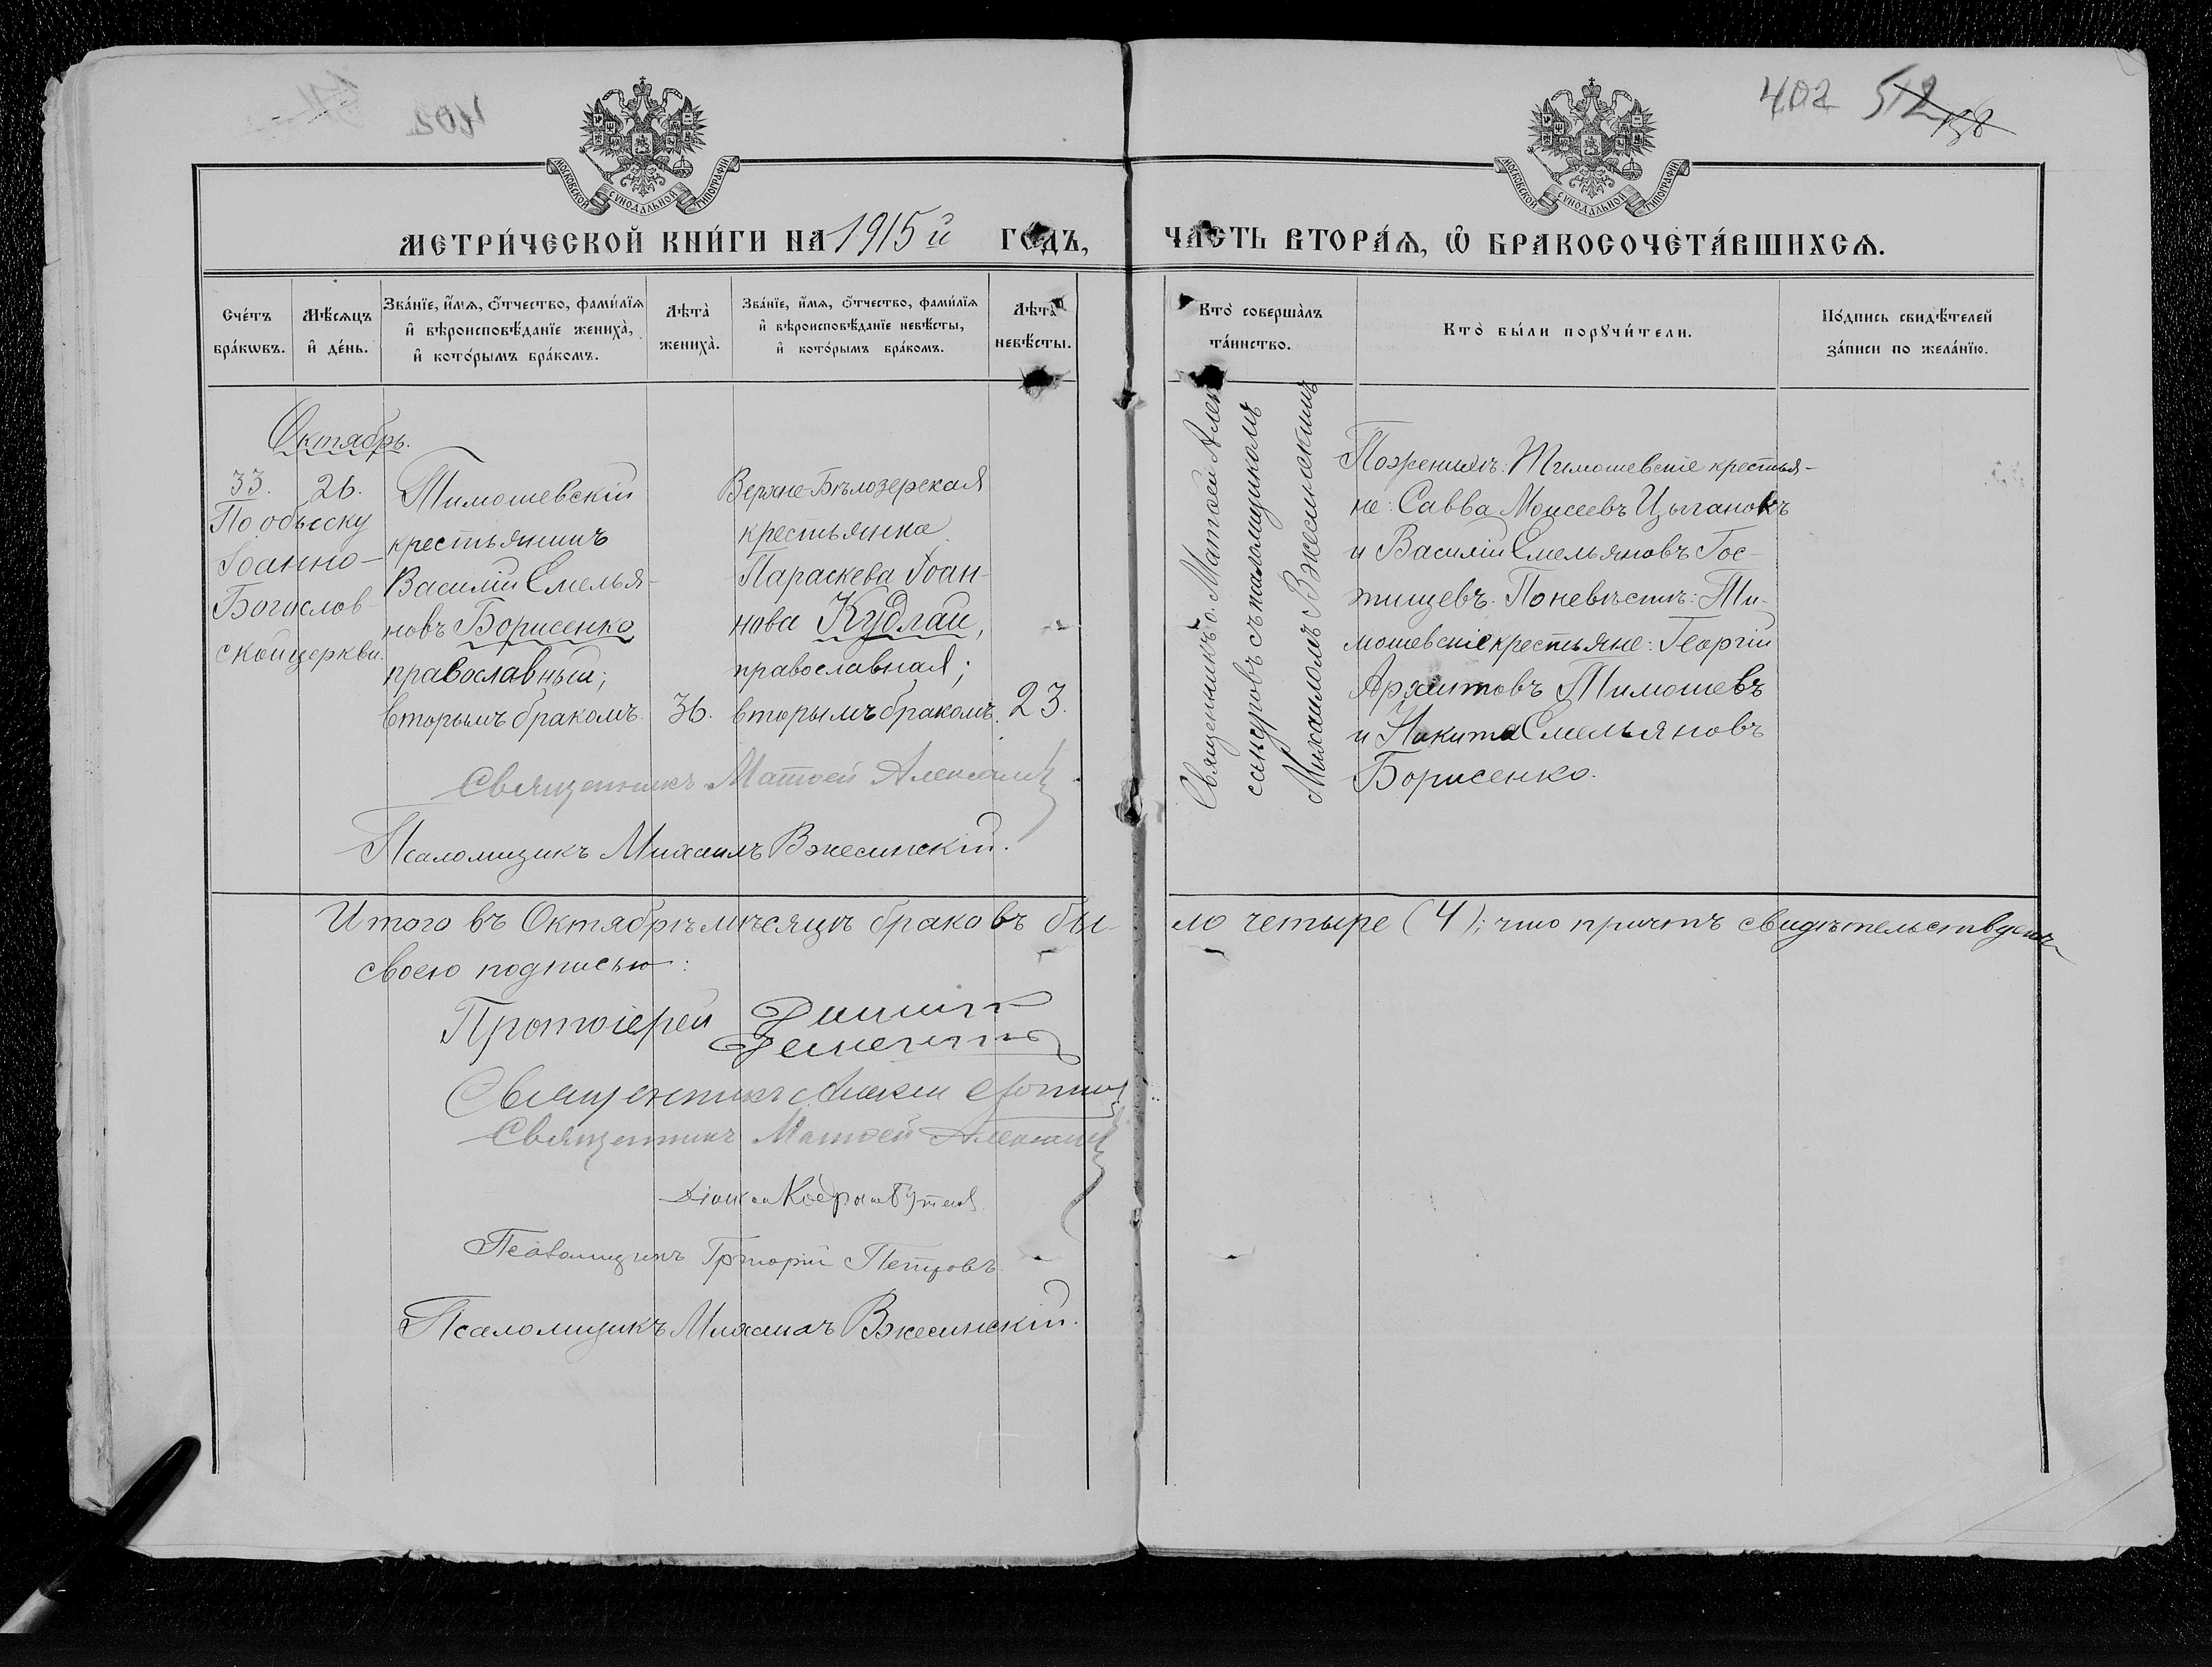 402 512 158
МОСКОВСКОЙ СѴНОДАЛЬНОЙ ТИПОГРАФІИ
МОСКОВСКОЙ СѴНОДАЛЬНОЙ ТИПОГРАФІИ
МЕТРИ́ЧЕСКОЙ КНИ́ГИ НА 1915й ГО́ДЪ,
ЧА́СТЬ ВТОРА́Ѧ, Ѽ БРАКОСОЧЕТА́ВШИХСѦ.
Сче́тъ бра́кѡвъ.
Мѣ́сѧцъ и҆ де́нь.
Зва́нїе, и҆́мѧ, ѻ҆́тчество, фами́лїѧ и҆ вѣроисповѣ́данїе жениха̀, и҆ кото́рымъ бра́комъ.
Лѣта̀ жениха̀.
Зва́нїе, и҆́мѧ, ѻ҆́тчество, фами́лїѧ и҆ вѣроисповѣ́данїе невѣ́сты, и҆ кото́рымъ бра́комъ.
Лѣта̀ невѣ́сты.
Кто̀ соверша́лъ та́инство.
Кто̀ бы́ли порꙋчи́тели.
По́дпись свидѣ́телей за́писи по жела́нїю.
Октябрь.
33.
По обыску
Іоанно-
Богослов-
ской церкви.
26.
Тимошевскій
крестьянинъ
Василій Емелья-
новъ Борисенко
православный;
вторымъ бракомъ.
36.
Верхне-Бѣлозерская
крестьянка
Параскева Іоан-
нова Кудлай,
православная;
вторымъ бракомъ.
23.
Священникъ о. Матѳей Алек
сандровъ съ псаломщикомъ
Михаиломъ Вжесинскимъ
По женихѣ: Тимошевскіе крестья-
не: Савва Моисеевъ Цыгановъ
и Василій Емельяновъ Гос-
тищевъ. По невѣстѣ: Ти-
мошевскіе крестьяне: Георгій
Архиповъ Тимошевъ
и Никита Емельяновъ
Борисенко.
Священникъ Матѳей Александр
Псаломщикъ Михаилъ Вжесинскій.
Итого въ Октябрѣ мѣсяцѣ браковъ бы-
ло четыре (4); что причтъ свидѣтельствуетъ
своею подписью:
Протоіерей
Священникъ Алексій
Священникъ Матѳей Александр
Діаконъ
Псаломщикъ Григорій Петровъ
Псаломщикъ Михаилъ Вжесинскій.